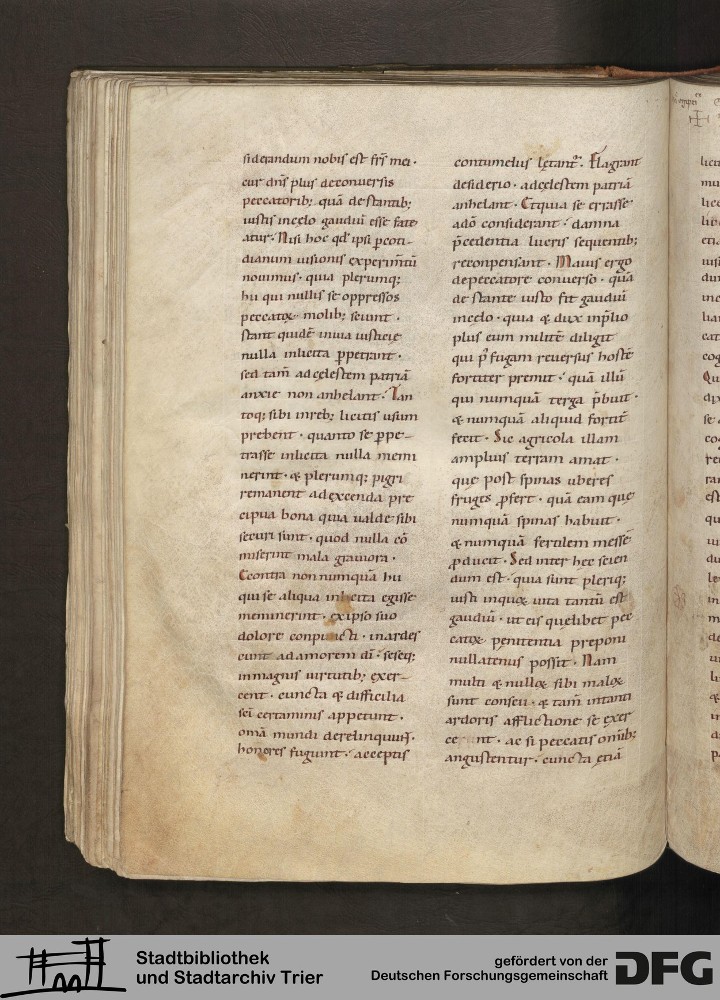 siderandum nobis est frs̄ mei ·
cur dn̄s plus deconuersis
peccatorib; quā destantib;
iustis incęlo gaudiū esse fate
atur · Nisi hoc qd̄ ipsi ꝑcoti-
dianum uisionis experim̄tū
nouimus · quia plerumq;
hii qui nullis se oppressos
peccatoꝝ molib; sciunt ·
stant quidē inuia iusticię
nulla inlicita ꝑpetrant ·
sed tam̄ adcęlestem patriā
anxie non anhelant · Tan
toq; sibi inreb; licitis usum
prebent · quanto se ꝑpe-
trasse inlicita nulla memi
nerint · & plerumq; pigri
remanent adexcenda pre
cipua bona quia ualde sibi
securi sunt · quod nulla cō
miserint mala grauiora ·
Econtra non numquā hii
qui se aliqua inlicita egisse
meminerint · exipso suo
dolore conpuncti · inardes
cunt adamorem dī · seseq;
inmagnis uirtutib; exer-
cent · cuncta & difficilia
sc̄i certaminis appetunt ·
om̄a mundi derelinquunt ·
honores fugiunt · acceptis
contumeliis lętant᷒ · Flagrant
desiderio · adcęlestem patriā
anhelant · Etquia se errasse
adō considerant · damna
p̄cedentia lucris sequentib;
reconpensant · Maius ergo
depeccatore conuerso · quā
de stante iusto fit gaudiū
incęlo · quia & dux inp̄lio
plus eum militē diligit
qui p̄ fugam reuersus hostē
fortiter premit · quā illū
qui numquā terga p̄buit ·
& numquā aliquid fortit̄
fecit · Sic agricola illam
amplius terram amat ·
que post spinas uberes
fruges ꝓfert · quā eam que
numquā spinas habuit ·
& numquā fertilem messē
ꝓducit · Sed inter hec scien
dum est · quia sunt pleriq;
iusti inquoꝝ uita tantū est
gaudiū · ut eis quelibet pec
catoꝝ penitentia preponi
nullatenus possit · Nam
multi & nulloꝝ sibi maloꝝ
sunt conscii · & tam̄ intanti
ardoris afflictione se exer
cent · ac si peccatis om̄ib;
angustentur · cuncta etiā
Stadtbibliothek
und Stadtarchiv Trier
gefördert von der
Deutschen Forschungsgemeinschaft
DFG